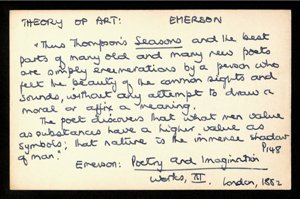 THEORY OF ART: EMERSON
"Thus Thompson's Seasons and the best
parts of many old and many new poets
are simply enumerations by a person who
felt the beauty of the common sights and
sounds, without any attempt to draw a
moral or affix a meaning.
The poet discovers that what men value
as substances have a higher value as
symbols; that nature is the immense shadow
of man." P148
EMERSON: Poetry and Imagination
Works, III. London, 1882